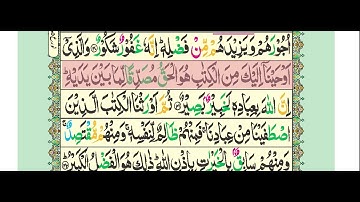 اُجُوْرَهُمْ وَيَزِيْدَهُمْ مِّنْ فَضْلِهٖ ؕ اِنَّهٗ غَفُوْرٌ شَكُوْرٌ ۝ وَالَّذِيْۤ
اَوْحَيْنَاۤ اِلَيْكَ مِنَ الْكِتٰبِ هُوَ الْحَقُّ مُصَدِّقًا لِّمَا بَيْنَ يَدَيْهِ ؕ
اِنَّ اللّٰهَ بِعِبَادِهٖ لَخَبِيْرٌۢ بَصِيْرٌ ۝ ثُمَّ اَوْرَثْنَا الْكِتٰبَ الَّذِيْنَ
اصْطَفَيْنَا مِنْ عِبَادِنَا ۚ فَمِنْهُمْ ظَالِمٌ لِّنَفْسِهٖ ۚ وَمِنْهُمْ مُّقْتَصِدٌ ۚ
وَمِنْهُمْ سَابِقٌۢ بِالْخَيْرٰتِ بِاِذْنِ اللّٰهِ ؕ ذٰلِكَ هُوَ الْفَضْلُ الْكَبِيْرُ ؕ